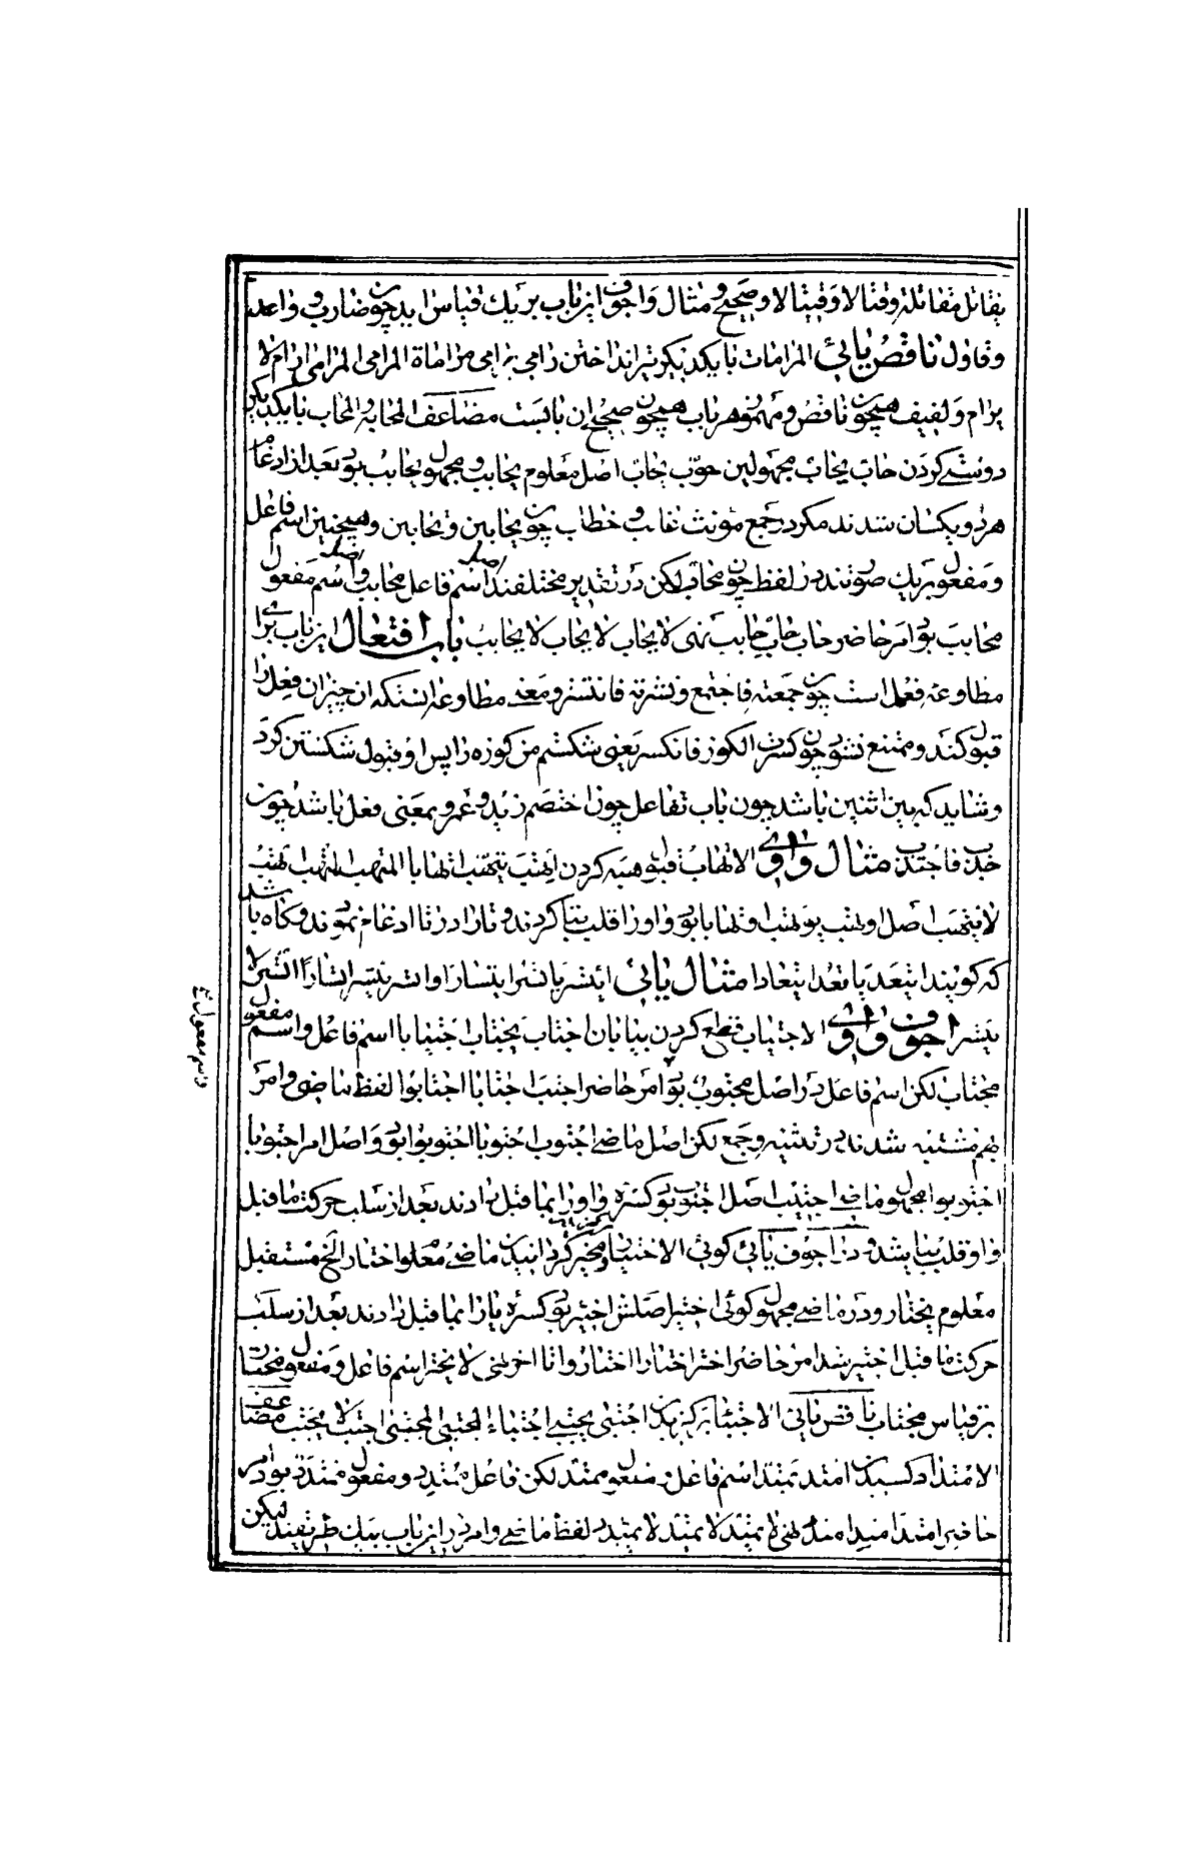 یقاتل مقاتلة و قتالا و قیتالا و صحیح و مثال و اجوف از باب بر یک قیاس اید چون ضارب و واعد
و قاول ناقص یائی المرامات با یکدیگر تیر انداختن رامی یرامی مراماة المرامی المرامی رام لا
یرام و لفیف همچون ناقص و مهموز هر باب همچون صحیح ان بابست مضاعف المحابة و الحاب با یکدیگر
دوستی کردن حاب یحاب مجهولین حوب یحاب اصل معلوم یحابب و مجهول یحابب بود بعد از ادغام
هر دو یکسان شدند مکر در جمع مونث غایب و خطاب چون یحاببن و تحاببن و همچنین اسم فاعل
و مفعول بر یک صورتند در لفظ چون محاب لکن در تقدیر مختلفند اصل اسم فاعل محابب و اصل اسم مفعول
محابب بود امر حاضر حاب حاب حابب نهی لا یحاب لا یحاب لا یحابب باب افتعال این باب برای
مطاوعه فعل است چون جمعته فاجتمع و نشرته فانتشر و معنی مطاوعه انستکه ان چیز ان فعل را
قبول کند و ممتنع نشود چون کسرت الکوز فانکسر یعنی شکستم من کوزه را پس او قبول شکستن کرد
و شاید که بین اثنین باشد چون باب تفاعل چون اختصم زید و عمرو بمعنی فعل باشد چون
جذب فاجتذب مثال واوی الاتهاب قبول هبه کردن اتهب یتهب اتهابا المتهب المتهب اتهب
لا یتهب اصل اوتهب یوتهب اوتهابا بود واو را قلب بتا کردند و تا را در تا ادغام نمودند و کاه باشد
که کویند ایتعد یاتعد ایتعادا مثال یائی ایتسر یاتسر ایتسارا و اتسر یتسر اتسارا اتسر لا
یتسر اجوف واوی الاجتیاب قطع کردن بیابان اجتاب یجتاب اجتیابا اسم فاعل و اسم مفعول
مجتاب لکن اسم فاعل در اصل مجتوب بود امر حاضر اجتب اجتابا اجتابوا لفظ ماضی و امر
بهم مشتبه شدند در تثنیه و جمع لکن اصل ماضی اجتوب اجتوبا اجتوبوا بود و اصل امر اجتوبا
اجتوبوا مجهول ماضی اجتیب اصل اجتوب بود کسره واو را بما قبل دادند بعد از سلب حرکت ما قبل
واو قلب بیا شد و در اجوف یائی کوئی الاختیار مخیر کردانیدن ماضی معلوم اختار الخ مستقبل
معلوم یختار و در ماضی مجهول کوئی اختیر اصلش اختیر بود کسره یا را بما قبل دادند بعد از سلب
حرکت ما قبل اختیر شد امر حاضر اختر اختارا اختاروا تا اخر نهی لا یختر اسم فاعل و مفعول مختار
بر قیاس مجتاب ناقص یائی الاجتباء برکزیدن اجتبی یجتبی اجتباء المجتبی المجتبی اجتب لا یجتب مضاعف
الامتداد کشیدن امتد یمتد اسم فاعل و مفعول ممتد لکن فاعل ممتدد و مفعول ممتدد بود امر
حاضر امتد امتد امتدد نهی لا یمتد لا یمتد لا یمتدد لفظ ماضی و امر در این باب بیک طریقند لیکن